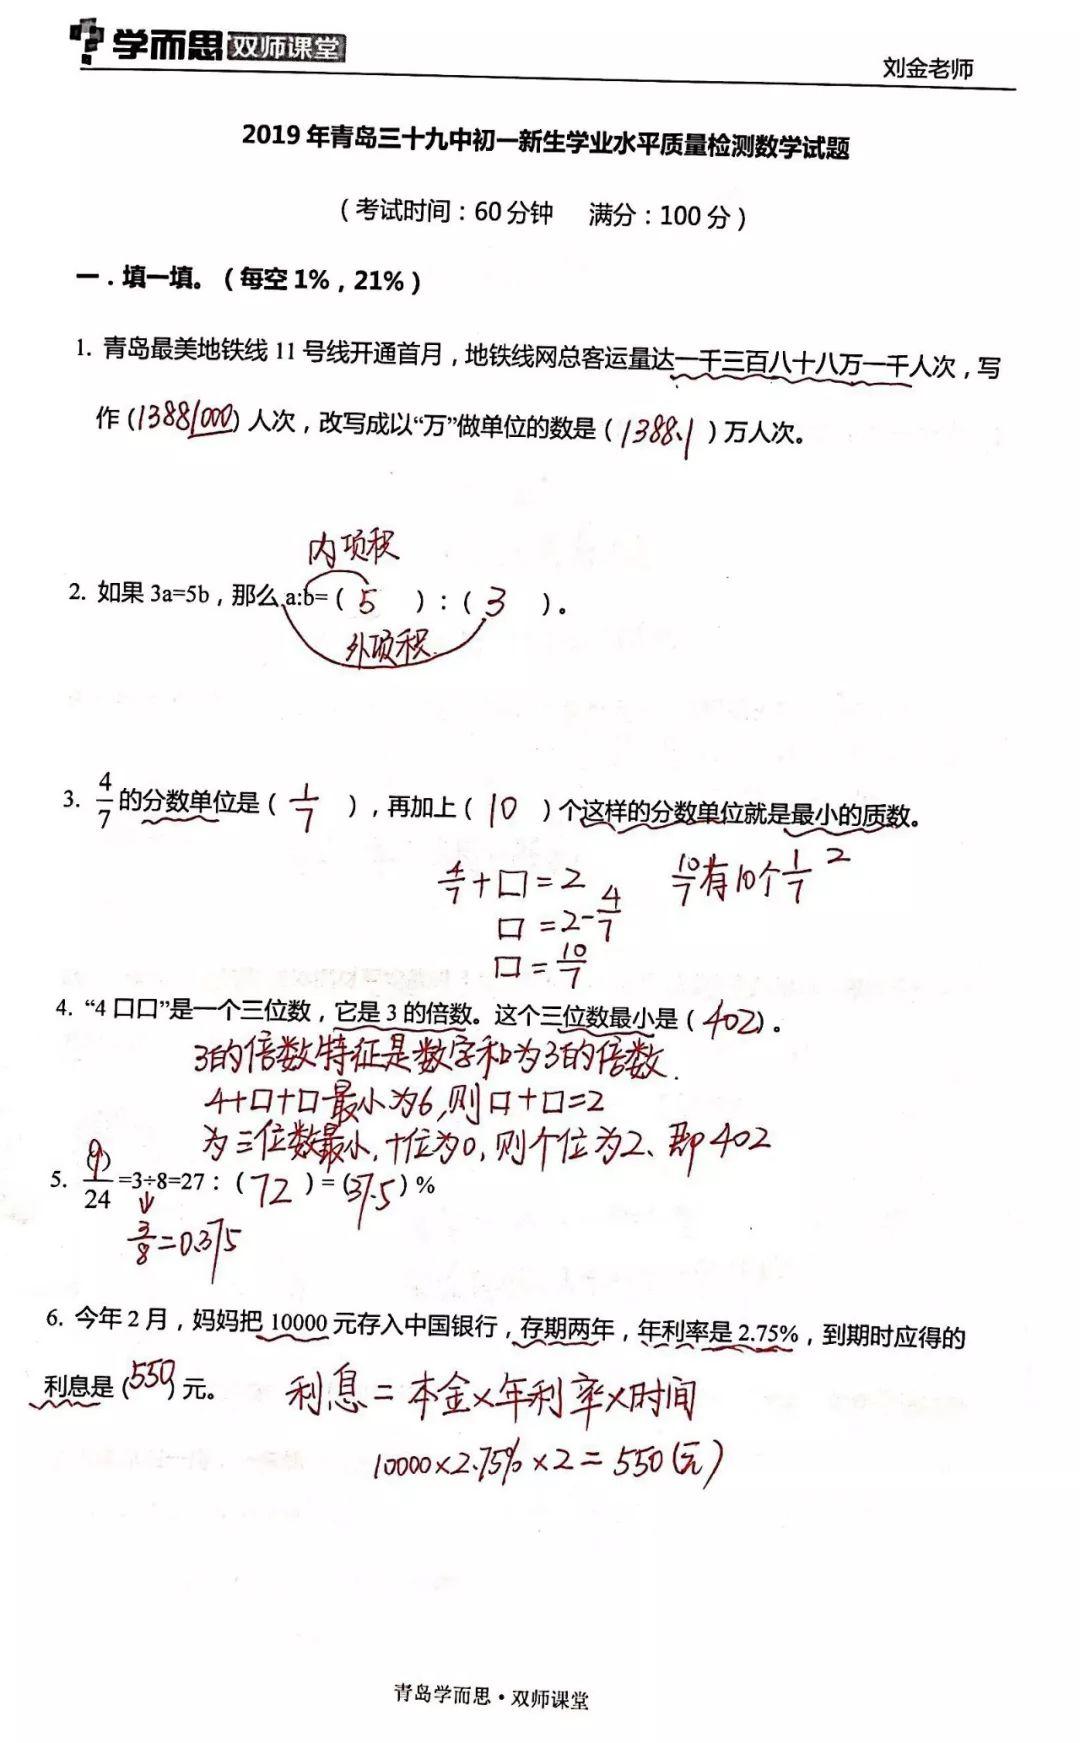 学而思双师课堂
刘金老师
2019年青岛三十九中初一新生学业水平质量检测数学试题
（考试时间：60分钟 满分：100分）
一．填一填。（每空1%，21%）
1. 青岛最美地铁线11号线开通首月，地铁线网总客运量达一千三百八十八万一千人次，写
作(13881000)人次，改写成以“万”做单位的数是（1388.1）万人次。
内项积
2. 如果3a=5b，那么a:b=（5）:（3）。
外项积
3. 4/7的分数单位是（1/7），再加上（10）个这样的分数单位就是最小的质数。
2
4/7+口=2 10/7有10个1/7
口=2-4/7
口=10/7
4. “4口口”是一个三位数，它是3的倍数。这个三位数最小是（402）。
3的倍数特征是数字和为3的倍数.
4+口+口最小为6,则口+口=2
为三位数最小,十位为0,则个位为2、即402
5. (9)/24=3÷8=27：（72）=(37.5)%
3/8=0.375
6. 今年2月，妈妈把10000元存入中国银行，存期两年，年利率是2.75%，到期时应得的
利息是(550)元。
利息=本金×年利率×时间
10000×2.75%×2=550(元)
青岛学而思·双师课堂